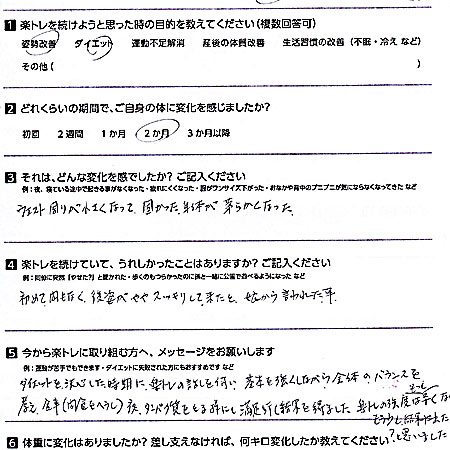 1 楽トレを続けようと思った時の目的を教えてください(複数回答可)
姿勢改善 ダイエット 運動不足解消 産後の体質改善 生活習慣の改善(不眠・冷え など)
その他( )
2 どれくらいの期間で、ご自身の体に変化を感じましたか?
初回 2週間 1か月 2か月 3か月以降
3 それは、どんな変化を感でしたか?ご記入ください
例:夜、寝ている途中で起きる事がなくなった・疲れにくくなった・服がワンサイズ下がった・おなかや背中のプニプニが気にならなくなってきた など
ウエスト周りが小さくなって、固かった身体が柔らかくなった。
4 楽トレを続けていて、うれしかったことはありますか?ご記入ください
例:同僚に突然「やせた?」と聞かれた・歩くのもつらかったのに孫と一緒に公園で遊べるようになった など
後姿がややスッキリして来たと、
言われた事。
5 今から楽トレに取り組む方へ、メッセージをお願いします
例:運動が苦手でもできます・ダイエットに失敗された方にもおすすめです など
ダイエットを決心した時期に楽トレの話しを伺い、 を強くしながら全体のバランスを
食事(間食をへらし)夜、タンパク質をとる事にし 結果を得ました。楽トレの強度は
もう少し結果が出た
?と思いました
6 体重に変化はありましたか?差し支えなければ、何キロ変化したか教えてください